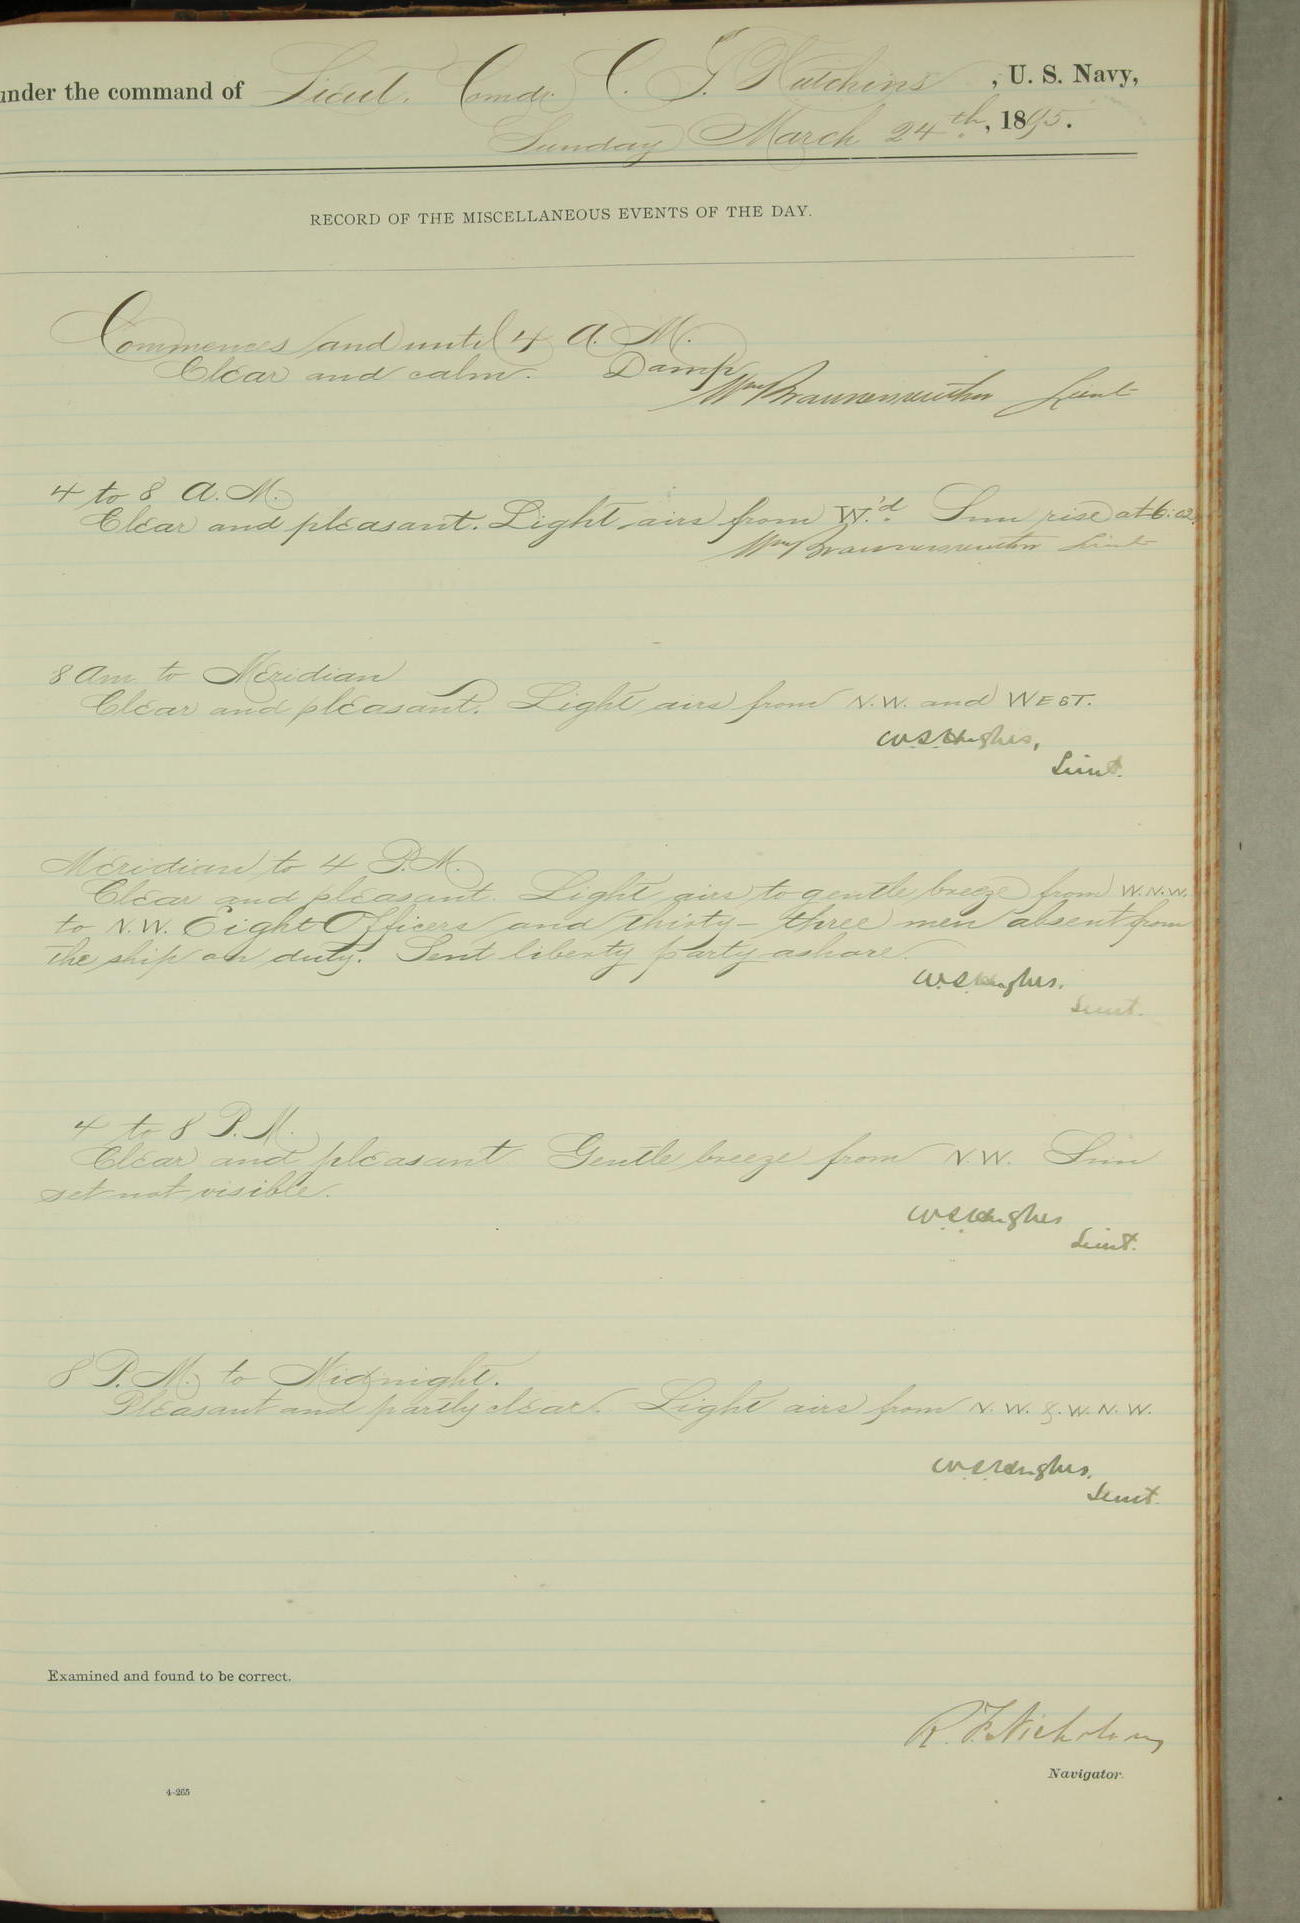 under the command of Lieut. Comdr. C. T. Hutchins, U. S. Navy,
Sunday March 24th, 1895.
RECORD OF THE MISCELLANEOUS EVENTS OF THE DAY.
Commences and until 4 A. M.
Clear and calm. Damp
Wm Braunersreuther Lieut
4 to 8 A. M.
Clear and pleasant. Light airs from W.'d. Sun rise at 6:02.
Wm Braunersreuther Lieut
8 am to Meridian
Clear and pleasant. Light airs from N.W. and WEST.
W.S. Hughes,
Lieut.
Meridian to 4 P.M.
Clear and pleasant. Light airs to gentle breeze from W.N.W.
to N.W. Eight Officers and thirty-three men absent from
the ship on duty. Sent liberty party ashore.
W.S. Hughes.
Lieut.
4 to 8 P. M.
Clear and pleasant Gentle breeze from N.W. Sun
set not visible.
W.S. Hughes
Lieut.
8 P. M. to Midnight.
Pleasant and partly clear. Light airs from N. W. & W. N. W.
W.S. Hughes.
Lieut.
Examined and found to be correct.
R. F. Nicholson
Navigator.
4-265